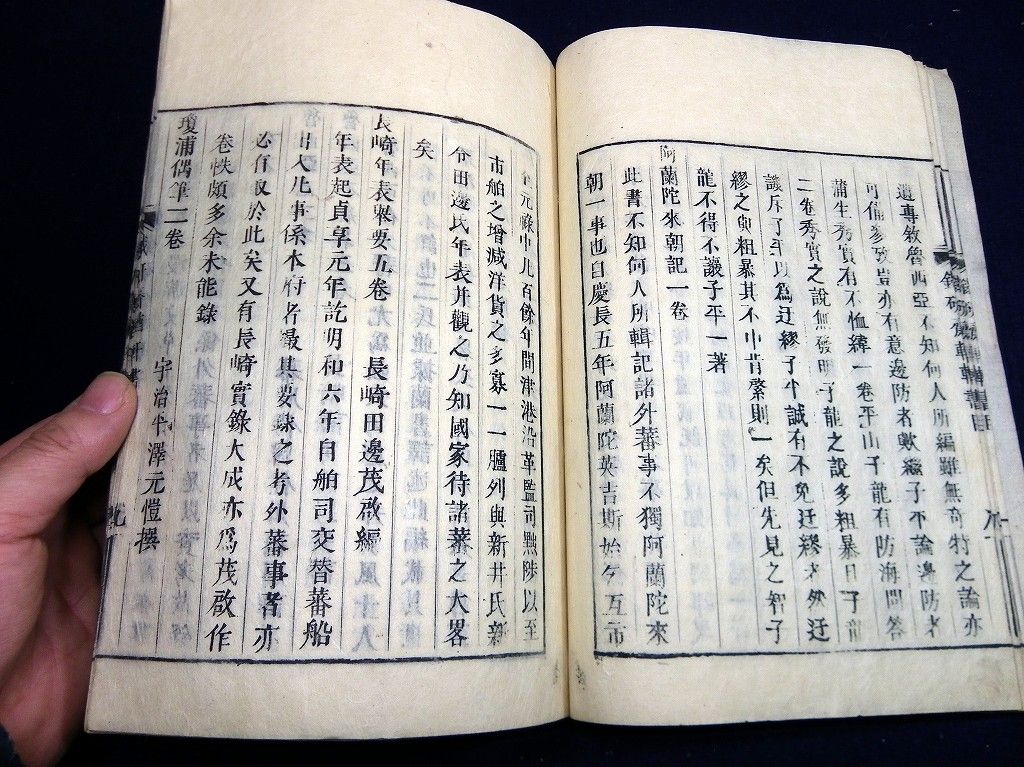 遺專敘魯西亞不知何人所編雖無奇特之論亦
可備參攷豈亦有意邊防者歟繼子不論邊防者
蒲生秀實有不恤緯一卷平山子龍有防海問答
二卷秀實之說無發明子龍之說多粗暴且子龍
譏斥子平以為迂繆子平誠有不免迂繆者然迂
繆之與粗暴其不中肯綮則一矣但先見之智子
龍不得不讓子平一著
阿蘭陀來朝記一卷
此書不知何人所輯記諸外蕃事不獨阿蘭陀來
朝一事也自慶長五年阿蘭陀英吉斯始乞互市
元祿中凡百餘年間津港沿革監司黜陟以至
市舶之增減洋貨之多寡一一臚列與新井氏新
令田邊氏年表并觀之乃知國家待諸蕃之大畧
矣
長崎年表舉要五卷 長崎田邊茂啟編
年表起貞享元年訖明和六年自舶司交替蕃船
出入凡事係本府者撮其要錄之考外蕃事者亦
必有取於此矣又有長崎實錄大成亦爲茂啟作
卷帙頗多余未能錄
瓊浦偶筆二卷 宇治平澤元愷撰